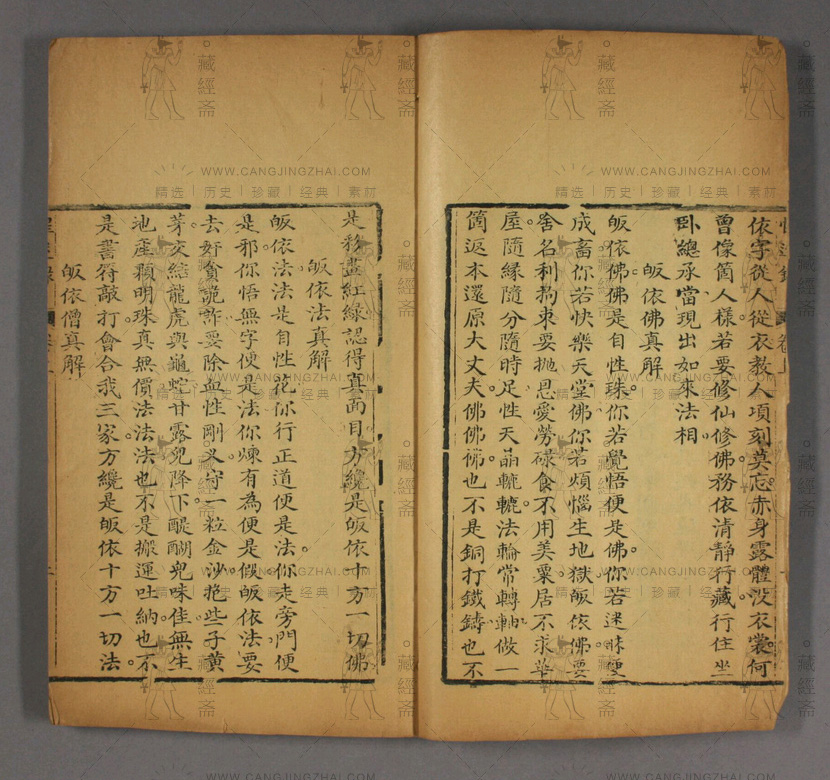 依字從人從衣教人項刻莫忘赤身露體沒衣裳何
曾像箇人樣若要修仙修佛務依清靜行藏行住坐
卧總承當現出如來法相
皈依佛真解
皈依佛佛是自性珠你若覺悟便是佛你若迷昧壟
成畜你若快樂天堂佛你若煩惱生地獄皈依佛要
舍名利拘束要拋恩愛勞碌食不用美粟居不求華
屋隨緣隨分隨時足性天品轆轆法輪常轉軸做一
箇返本還原大丈夫佛佛佛也不是銅打鐵鑄也不
是移畫紅綠認得真面目方纔是皈依十方一切佛
皈依法真解
皈依法法是自性花你行正道便是法你走旁門便
是邪你悟無字便是法你煉有為便是假皈依法要
去奸貪詭詐要除血性剛叉守一粒金沙抱些子黃
芽交結龍虎與龜蛇甘露兜降下醍醐兜味佳無生
地產顆明珠真無價法法法也不是搬運吐納也不
是書符敲打會合我三家方纔是皈依十方一切法
皈依僧真解
藏經斋
WWW.CANGJINGZHAI.COM
精选 | 历史 | 珍藏 | 经典 | 素材